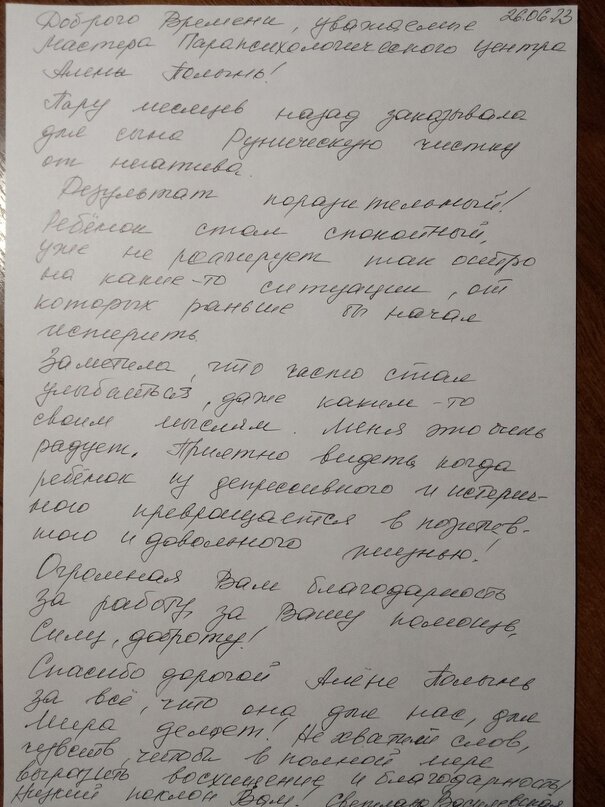 26.06.23
Доброго Времени, уважаемые
Мастера Парапсихологического центра
Алены Полынь!
Пару месяцев назад заказывала
для сына Руническую чистку
от негатива.
Результат поразительный!
Ребёнок стал спокойный,
уже не реагирует так остро
на какие-то ситуации, от
которых раньше бы начал
истерить
Заметила, что часто стал
улыбаться, даже каким-то
своим мыслям. Меня это очень
радует. Приятно видеть, когда
ребёнок из депрессивного и истерич-
ного превращается в позитив-
ного и довольного жизнью!
Огромная Вам благодарность
за работу, за Вашу помощь,
Силу, доброту!
Спасибо дорогой Алёне Полынь
за всё, что она для нас, для
Мира делает! Не хватит слов,
чувств, чтобы в полной мере
выразить восхищение и благодарность!
Низкий поклон Вам. Светлана